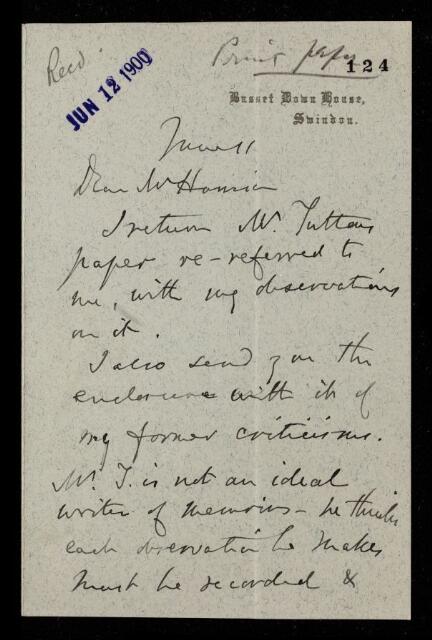 Recd.
JUN 12 1900
Print paper
124
Basset Down House,
Swindon.
June 11
Dear Mr Harrison
I return Mr. Tuttons
paper re-referred to
me, with my observations
on it.
I also send you the
enclosure with it of
my former criticisms.
Mr. T. is not an ideal
writer of memoirs - he thinks
each observation he makes
must be recorded &